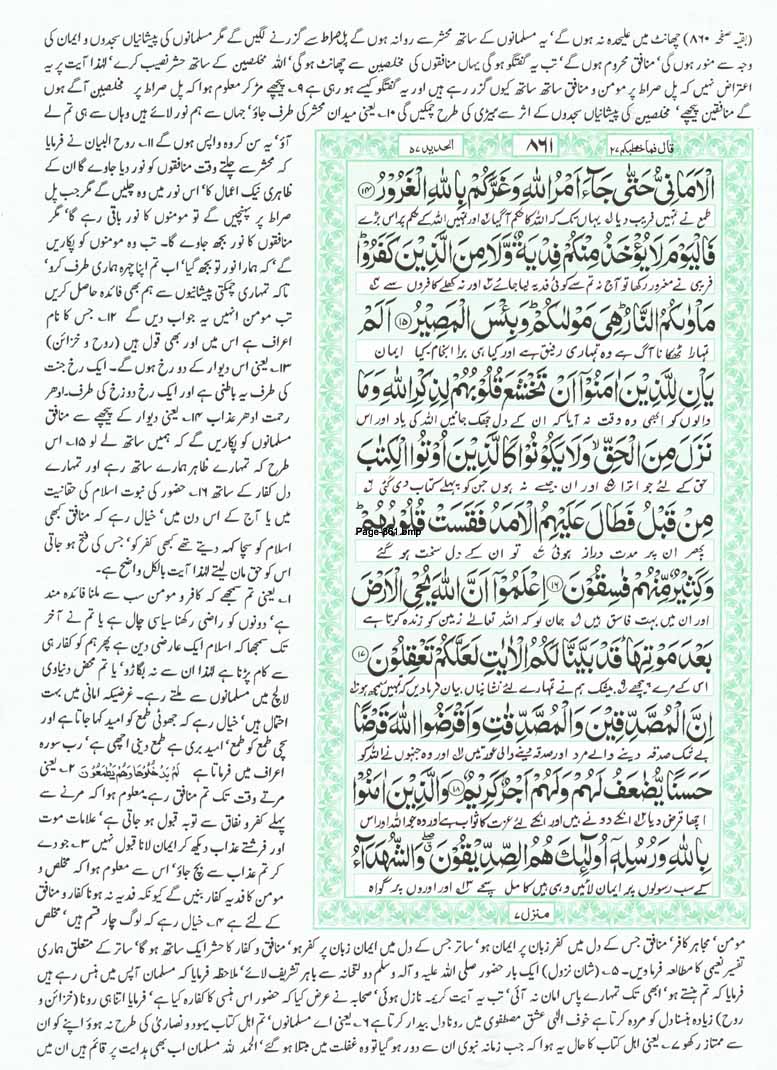 (بقیہ صفحہ ۸۶۰) چھانٹ میں علیحدہ نہ ہوں گے' یہ مسلمانوں کے ساتھ محشر سے روانہ ہوں گے پل صراط سے گزرنے لگیں گے مگر مسلمانوں کی پیشانیاں سجدوں و ایمان کی
وجہ سے منور ہوں گی' منافق محروم ہوں گے' تب یہ گفتگو ہو گی یہاں منافقوں کی مخلصین سے چھانٹ ہو گی' اللہ مخلصین کے ساتھ حشر نصیب کرے' لہٰذا آیت پر یہ
اعتراض نہیں کہ پل صراط پر مومن و منافق ساتھ ساتھ کیوں گزر رہے ہیں اور یہ گفتگو کیسے ہو رہی ہے ۹۔ پیچھے مڑ کر معلوم ہوا کہ پل صراط پر مخلصین آگے ہوں
گے منافقین پیچھے' مخلصین کی پیشانیاں سجدوں کے اثر سے بیٹری کی طرح چمکیں گی ۱۰۔ یعنی میدان محشر کی طرف جاؤ' جہاں سے ہم نور لائے ہیں وہاں سے ہی تم لے
آؤ' یہ سن کر وہ واپس ہوں گے ۱۱۔ روح البیان نے فرمایا
کہ محشر سے چلتے وقت منافقوں کو نور دیا جاوے گا ان کے
ظاہری نیک اعمال کا' اس نور میں وہ چلیں گے مگر جب پل
صراط پر پہنچیں گے تو مومنوں کا نور باقی رہے گا' مگر
منافقوں کا نور بجھ جاوے گا۔ تب وہ مومنوں کو پکاریں
گے' کہ ہمارا نور تو بجھ گیا' اب تم اپنا چہرہ ہماری طرف کرو'
تاکہ تمہاری چمکتی پیشانیوں سے ہم بھی فائدہ حاصل کریں
تب مومن انہیں یہ جواب دیں گے ۱۲۔ جس کا نام
اعراف ہے اس میں اور بھی قول ہیں (روح و خزائن)
۱۳۔ یعنی اس دیوار کے دو رخ ہوں گے۔ ایک رخ جنت
کی طرف یہ باطنی ہے اور ایک رخ دوزخ کی طرف۔ ادھر
رحمت ادھر عذاب ۱۴۔ یعنی دیوار کے پیچھے سے منافق
مسلمانوں کو پکاریں گے کہ ہمیں ساتھ لے لو ۱۵۔ اس
طرح کہ تمہارے ظاہر ہمارے ساتھ رہے اور تمہارے
دل کفار کے ساتھ ۱۶۔ حضور کی نبوت اسلام کی حقانیت
میں یا آج کے اس دن میں' خیال رہے کہ منافق کبھی
اسلام کو سچا کہہ دیتے تھے کبھی کفر کو' جس کی فتح ہو جاتی
اس کو حق مان لیتے لہٰذا آیت بالکل واضح ہے۔
۱۔ یعنی تم سمجھے کہ کافر و مومن سب سے ملنا فائدہ مند
ہے' دونوں کو راضی رکھنا سیاسی چال ہے یا تم نے آخر
تک سمجھا کہ اسلام ایک عارضی دین ہے پھر ہم کو کفار ہی
سے کام پڑنا ہے لہٰذا ان سے نہ بگاڑو' یا تم محض دنیاوی
لالچ میں مسلمانوں سے ملتے رہے۔ غرضیکہ امانی میں بہت
احتمال ہیں' خیال رہے کہ جھوٹی طمع کو امید کہا جاتا ہے اور
سچی طمع کو طمع' امید بری ہے طمع دینی اچھی ہے' رب سورہ
اعراف میں فرماتا ہے لَمْ یَدْخُلُوْهَا وَهُمْ یَطْمَعُوْنَ ۲۔ یعنی
مرتے وقت تک تم منافق رہے۔ معلوم ہوا کہ مرنے سے
پہلے کفر و نفاق سے توبہ قبول ہو جاتی ہے۔ علامات موت
اور فرشتے عذاب دیکھ کر ایمان لانا قبول نہیں ۳۔ جو دے
کر تم عذاب سے بچ جاؤ' اس سے معلوم ہوا کہ مخلص و
مومن کا فدیہ کفار بنیں گے کیونکہ فدیہ نہ ہونا کفار و منافق
کے لئے ہے ۴۔ خیال رہے کہ لوگ چار قسم ہیں' مخلص
قال فما خطبکم ۲۷
۸۶۱
الحدید ۵۷
الْاَمَانِیُّ حَتّٰی جَآءَ اَمْرُ اللّٰهِ وَغَرَّكُمْ بِاللّٰهِ الْغَرُوْرُ ۱۴
طمع نے تمہیں فریب دیا یہاں تک کہ اللہ کا حکم آگیا اور تمہیں اللہ کے حکم پر اس بڑے
فَالْیَوْمَ لَا یُؤْخَذُ مِنْكُمْ فِدْیَةٌ وَّلَا مِنَ الَّذِیْنَ كَفَرُوْا
فریبی نے مغرور رکھا تو آج نہ تم سے کوئی فدیہ لیا جائے اور نہ کھلے کافروں سے
مَاْوٰىكُمُ النَّارُ هِیَ مَوْلٰىكُمْ وَبِئْسَ الْمَصِیْرُ ۱۵ اَلَمْ
تمہارا ٹھکانا آگ ہے وہ تمہاری رفیق ہے اور کیا ہی برا انجام کیا ایمان
یَاْنِ لِلَّذِیْنَ اٰمَنُوْۤا اَنْ تَخْشَعَ قُلُوْبُهُمْ لِذِكْرِ اللّٰهِ وَمَا
والوں کو ابھی وہ وقت نہ آیا کہ ان کے دل جھک جائیں اللہ کی یاد اور اس
نَزَلَ مِنَ الْحَقِّ وَلَا یَكُوْنُوْا كَالَّذِیْنَ اُوْتُوا الْكِتٰبَ
حق کے لئے جو اترا اور ان جیسے نہ ہوں جن کو پہلے کتاب دی گئی
مِنْ قَبْلُ فَطَالَ عَلَیْهِمُ الْاَمَدُ فَقَسَتْ قُلُوْبُهُمْ
Page-861.bmp
پھر ان پر مدت دراز ہوئی تو ان کے دل سخت ہو گئے
وَكَثِیْرٌ مِّنْهُمْ فٰسِقُوْنَ ۱۶ اِعْلَمُوْۤا اَنَّ اللّٰهَ یُحْیِ الْاَرْضَ
اور ان میں بہت فاسق ہیں جان لو کہ اللہ تعالٰے زمین کو زندہ کرتا ہے
بَعْدَ مَوْتِهَا قَدْ بَیَّنَّا لَكُمُ الْاٰیٰتِ لَعَلَّكُمْ تَعْقِلُوْنَ ۱۷
اس کے مرے پیچھے بیشک ہم نے تمہارے لئے نشانیاں بیان فرما دیں کہ تمہیں سمجھ ہو
اِنَّ الْمُصَّدِّقِیْنَ وَالْمُصَّدِّقٰتِ وَاَقْرَضُوا اللّٰهَ قَرْضًا
بے شک صدقہ دینے والے مرد اور صدقہ دینے والی عورتیں اور وہ جنہوں نے اللہ کو
حَسَنًا یُّضٰعَفُ لَهُمْ وَلَهُمْ اَجْرٌ كَرِیْمٌ ۱۸ وَالَّذِیْنَ اٰمَنُوْا
اچھا قرض دیا انکے دونے ہیں اور انکے لئے عزت کا ثواب ہے اور وہ جو اللہ اور اس
بِاللّٰهِ وَرُسُلِهٖۤ اُولٰٓىِٕكَ هُمُ الصِّدِّیْقُوْنَ وَالشُّهَدَآءُ
کے سب رسولوں پر ایمان لائیں وہی ہیں کامل سچے اور اوروں پر گواہ
منزل ۷
مومن' مجاہر کافر' منافق جس کے دل میں کفر زبان پر ایمان ہو' ساتر جس کے دل میں ایمان زبان پر کفر ہو' منافق و کفار کا حشر ایک ساتھ ہو گا' ساتر کے متعلق ہماری
تفسیر نعیمی کا مطالعہ فرما دیں۔ ۵۔ (شان نزول) ایک بار حضور صلی اللہ علیہ و آلہ و سلم دولتخانہ سے باہر تشریف لائے' ملاحظہ فرمایا کہ مسلمان آپس میں ہنس رہے ہیں
فرمایا کہ تم ہنستے ہو' ابھی تک تمہارے پاس امان نہ آئی' تب یہ آیت کریمہ نازل ہوئی' صحابہ نے عرض کیا کہ حضور اس ہنسی کا کفارہ کیا ہے' فرمایا اتنا ہی رونا (خزائن و
روح) زیادہ ہنسنا دل کو مردہ کرتا ہے خوف الٰہی عشق مصطفوی میں رونا دل بیدار کرتا ہے ۶۔ یعنی اے مسلمانوں' تم اہل کتاب یہود و نصاریٰ کی طرح نہ ہوؤ اپنے کو ان
سے ممتاز رکھو ۷۔ یعنی اہل کتاب کا حال یہ ہوا کہ جب زمانہ نبوی ان سے دور ہو گیا تو وہ غفلت میں مبتلا ہو گئے' الحمد للہ مسلمان اب بھی ہدایت پر قائم ہیں ان میں